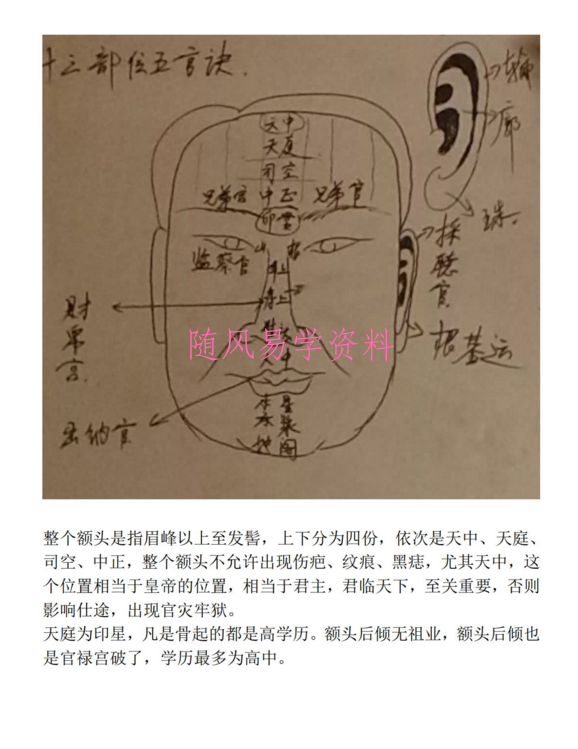 十三部位五官诀.
轮
廓
珠.
天中
天庭
司空
兄弟宫 中正 兄弟宫
印堂
监察官
山根
年上
寿上
採聽官
根基运
财帛宫
出纳官
人中
水星
承浆
地阁
随风易学资料
整个额头是指眉峰以上至发髻，上下分为四份，依次是天中、天庭、
司空、中正，整个额头不允许出现伤疤、纹痕、黑痣，尤其天中，这
个位置相当于皇帝的位置，相当于君主，君临天下，至关重要，否则
影响仕途，出现官灾牢狱。
天庭为印星，凡是骨起的都是高学历。额头后倾无祖业，额头后倾也
是官禄宫破了，学历最多为高中。